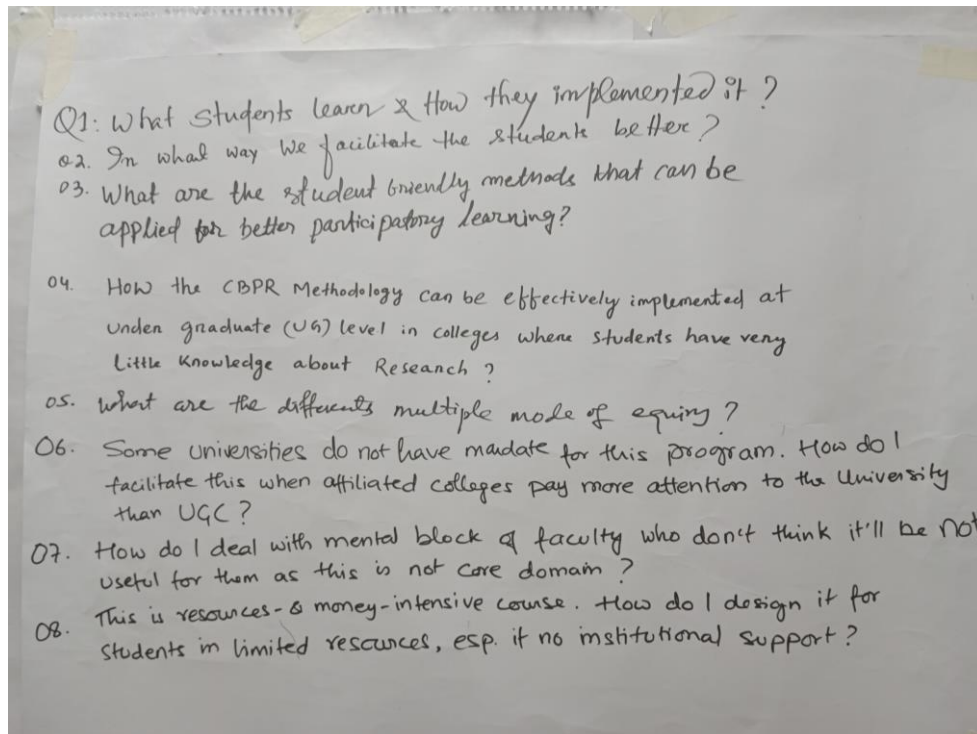 Q1: What students learn & How they implemented it ?
02. In what way we facilitate the students better ?
03. What are the student friendly methods that can be
applied for better participatory learning?
04. How the CBPR Methodology can be effectively implemented at
under graduate (UG) level in colleges where students have very
little knowledge about Research ?
05. What are the differents multiple mode of equiry ?
06. Some universities do not have mandate for this program. How do I
facilitate this when affiliated colleges pay more attention to the University
than UGC ?
07. How do I deal with mental block of faculty who don't think it'll be not
useful for them as this is not core domain ?
08. This is resources- & money-intensive course. How do I design it for
students in limited resources, esp. if no institutional support ?